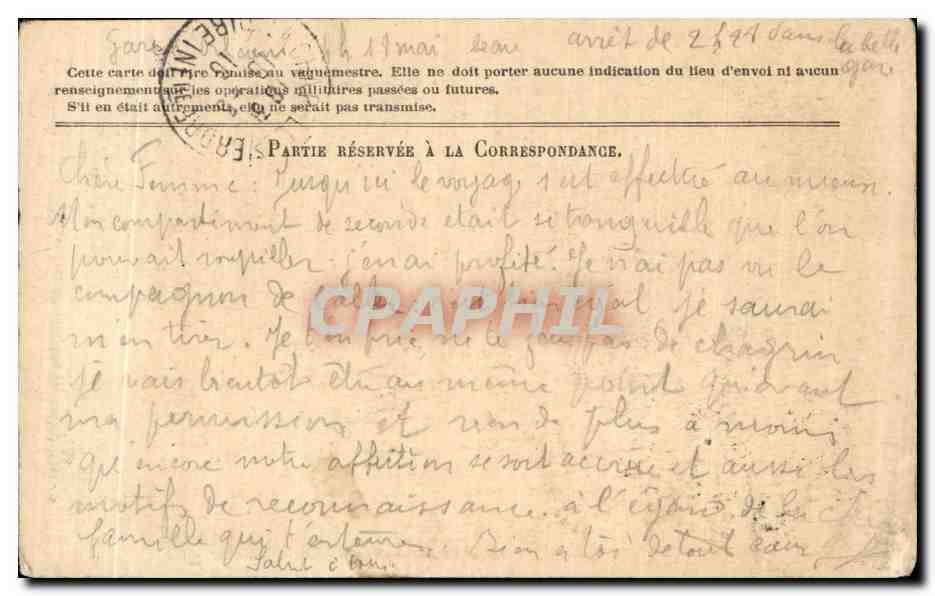 Gare 11 mai arrêt de 2h21 dans la belle
gare
Cette carte doit être remise au vaguemestre. Elle ne doit porter aucune indication du lieu d'envoi ni aucun
renseignement sur les opérations militaires passées ou futures.
S'il en était autrement, elle ne serait pas transmise.
PARTIE RÉSERVÉE À LA CORRESPONDANCE.
Chère Femme : Jusqu'ici le voyage s'est effectué au mieux.
Mon compartiment de seconde était si tranquille que l'on
pouvait roupiller j'en ai profité. Je n'ai pas vu le
compagnon de égal je saurai
m'en tirer. Je t'en prie ne te fais pas de chagrin
Je vais bientôt être au même point qu'avant
ma permission et rien de plus à moins
que encore notre affection se soit accrue et aussi les
motifs de reconnaissance à l'égard de la
famille qui t'entoure. Bien à toi de tout cœur
Salut à tous
CPAPHIL